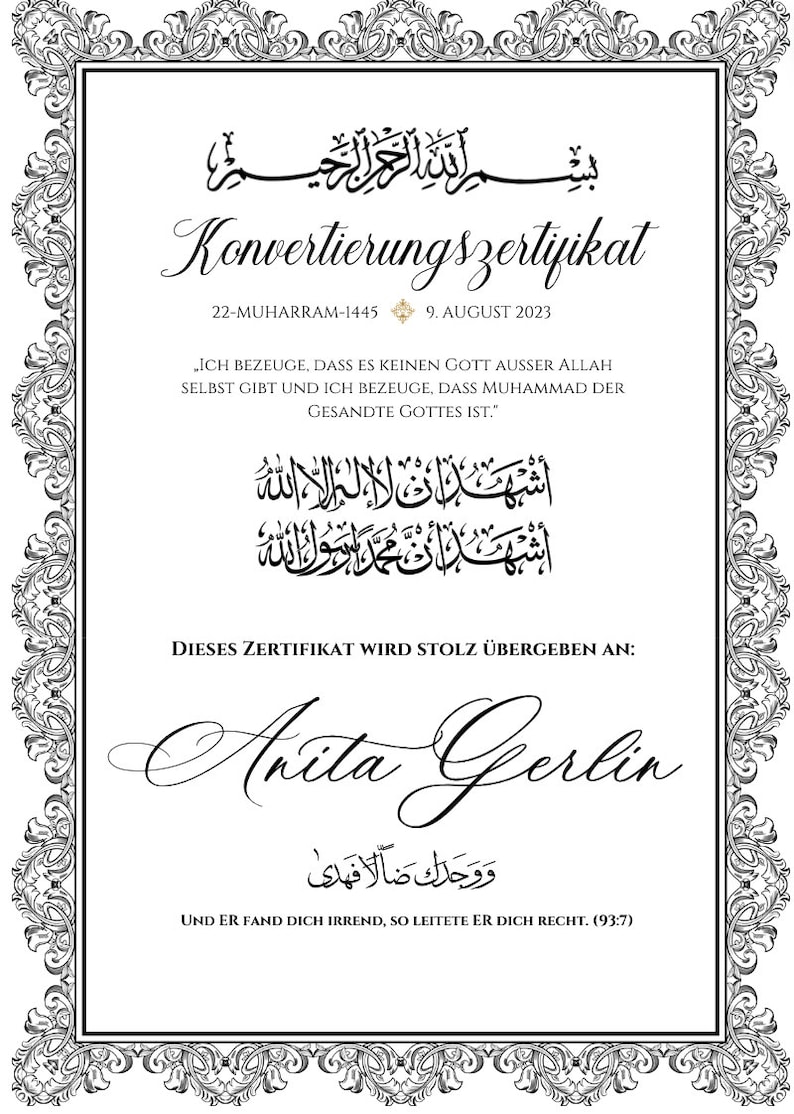 بسم الله الرحمن الرحيم
Konvertierungszertifikat
22-MUHARRAM-1445 9. AUGUST 2023
„ICH BEZEUGE, DASS ES KEINEN GOTT AUSSER ALLAH
SELBST GIBT UND ICH BEZEUGE, DASS MUHAMMAD DER
GESANDTE GOTTES IST."
أشهد أن لا إله إلا الله
أشهد أن محمدا رسول الله
DIESES ZERTIFIKAT WIRD STOLZ ÜBERGEBEN AN:
Anita Gerlin
ووجدك ضالا فهدى
UND ER FAND DICH IRREND, SO LEITETE ER DICH RECHT. (93:7)